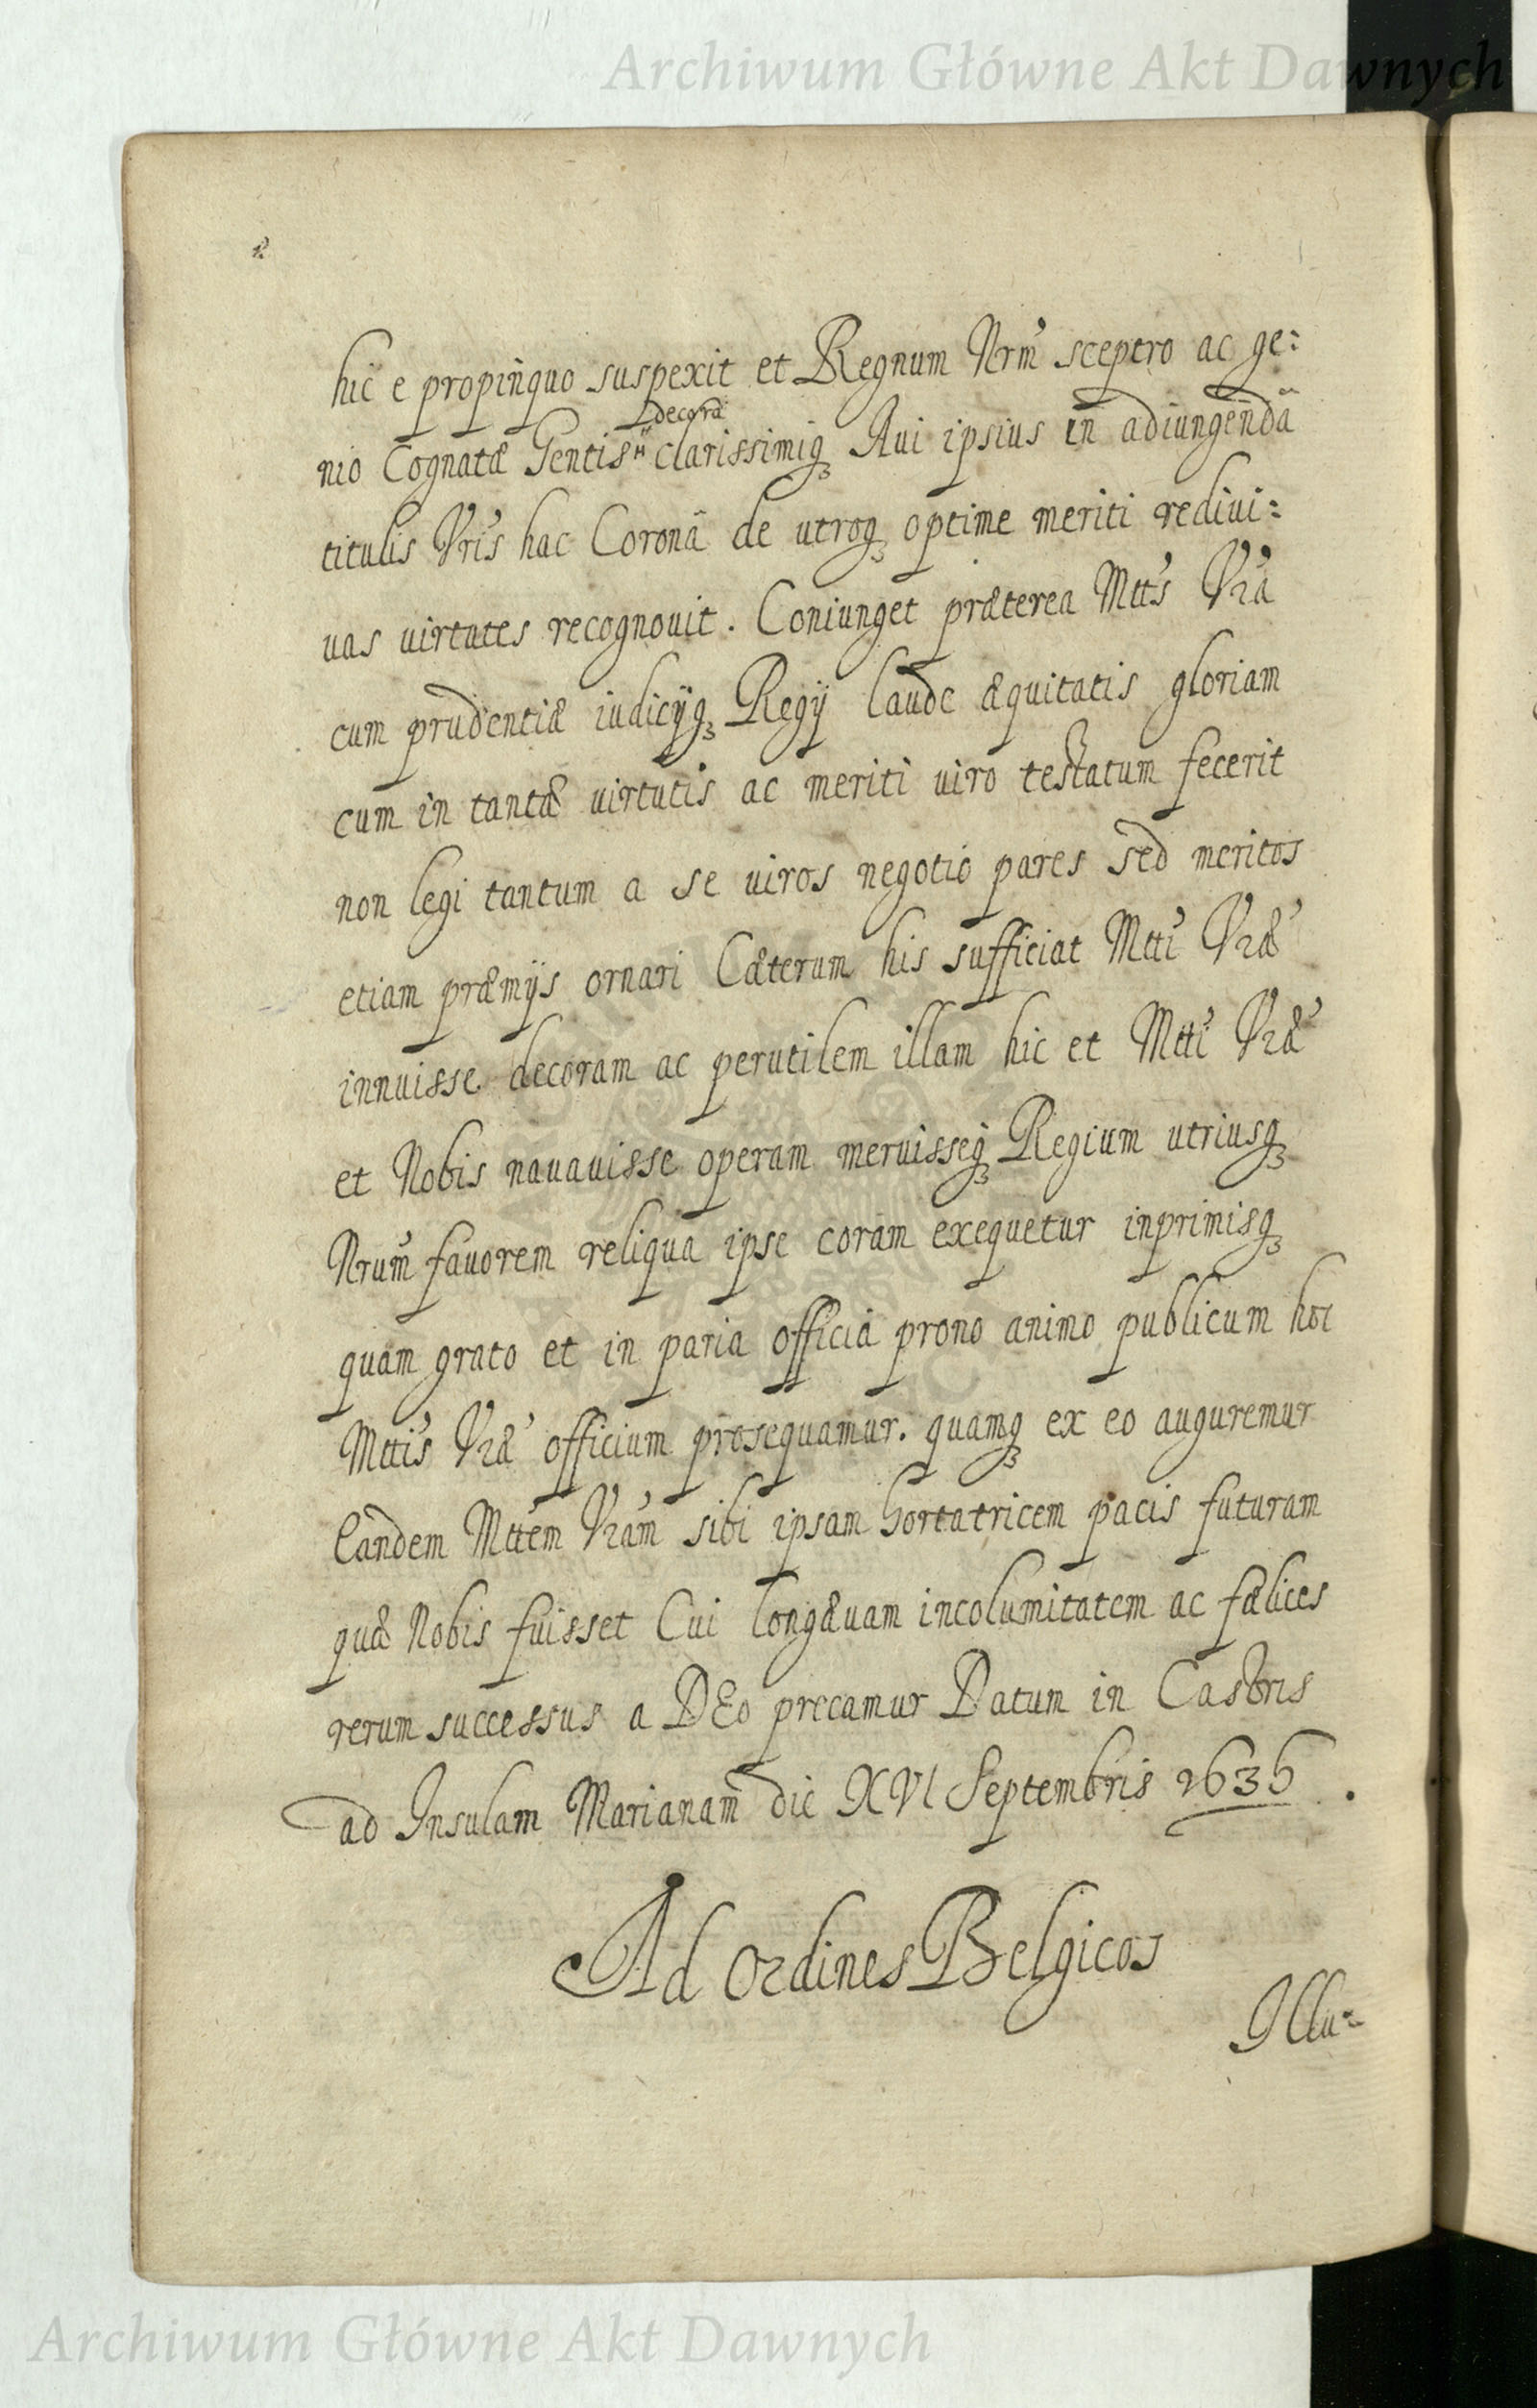 Archiwum Główne Akt Dawnych
hic e propinquo suspexit et Regnum Nrm̃ sceptro ac ge:
decora
nio Cognatæ Gentis clarissimiq̃ Aui ipsius in adiungenda
titulis Vris hac Coronâ de utroq̃ optime meriti rediui:
uas virtutes recognouit. Coniunget præterea Mtt's Vr̃a
cum prudentiæ iudicijq̃ Regij laude æquitatis gloriam
cum in tantæ virtutis ac meriti viro testatum fecerit
non legi tantum a se viros negotio pares sed meritos
etiam præmijs ornari Cæterum his sufficiat Mtti Vræ
innuisse decoram ac perutilem illam hic et Mtti Vræ
et Nobis nauauisse operam meruisseq̃ Regium utriusq̃
Nrum̃ fauorem reliqua ipse coram exequetur inprimisq̃
quam grato et in paria officia prono animo publicum hoc
Mttis Vræ officium prosequamur. quamq̃ ex eo auguremur
Eandem Mttem Vram sibi ipsam hortatricem pacis futuram
quæ Nobis fuisset Cui longæuam incolumitatem ac fælices
rerum successus a DEo precamur Datum in Castris
ad Insulam Marianam die XVI Septembris 1635.
Ad Ordines Belgicos
Illu:
Archiwum Główne Akt Dawnych